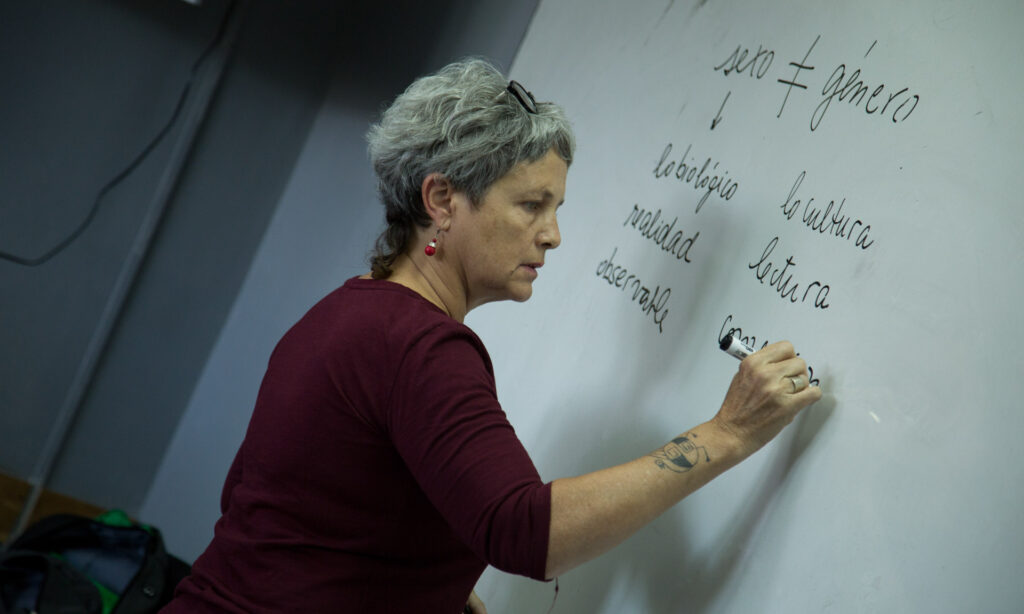 sexo ≠ género
↓
lo biológico
realidad
observable
lo cultura
lectura